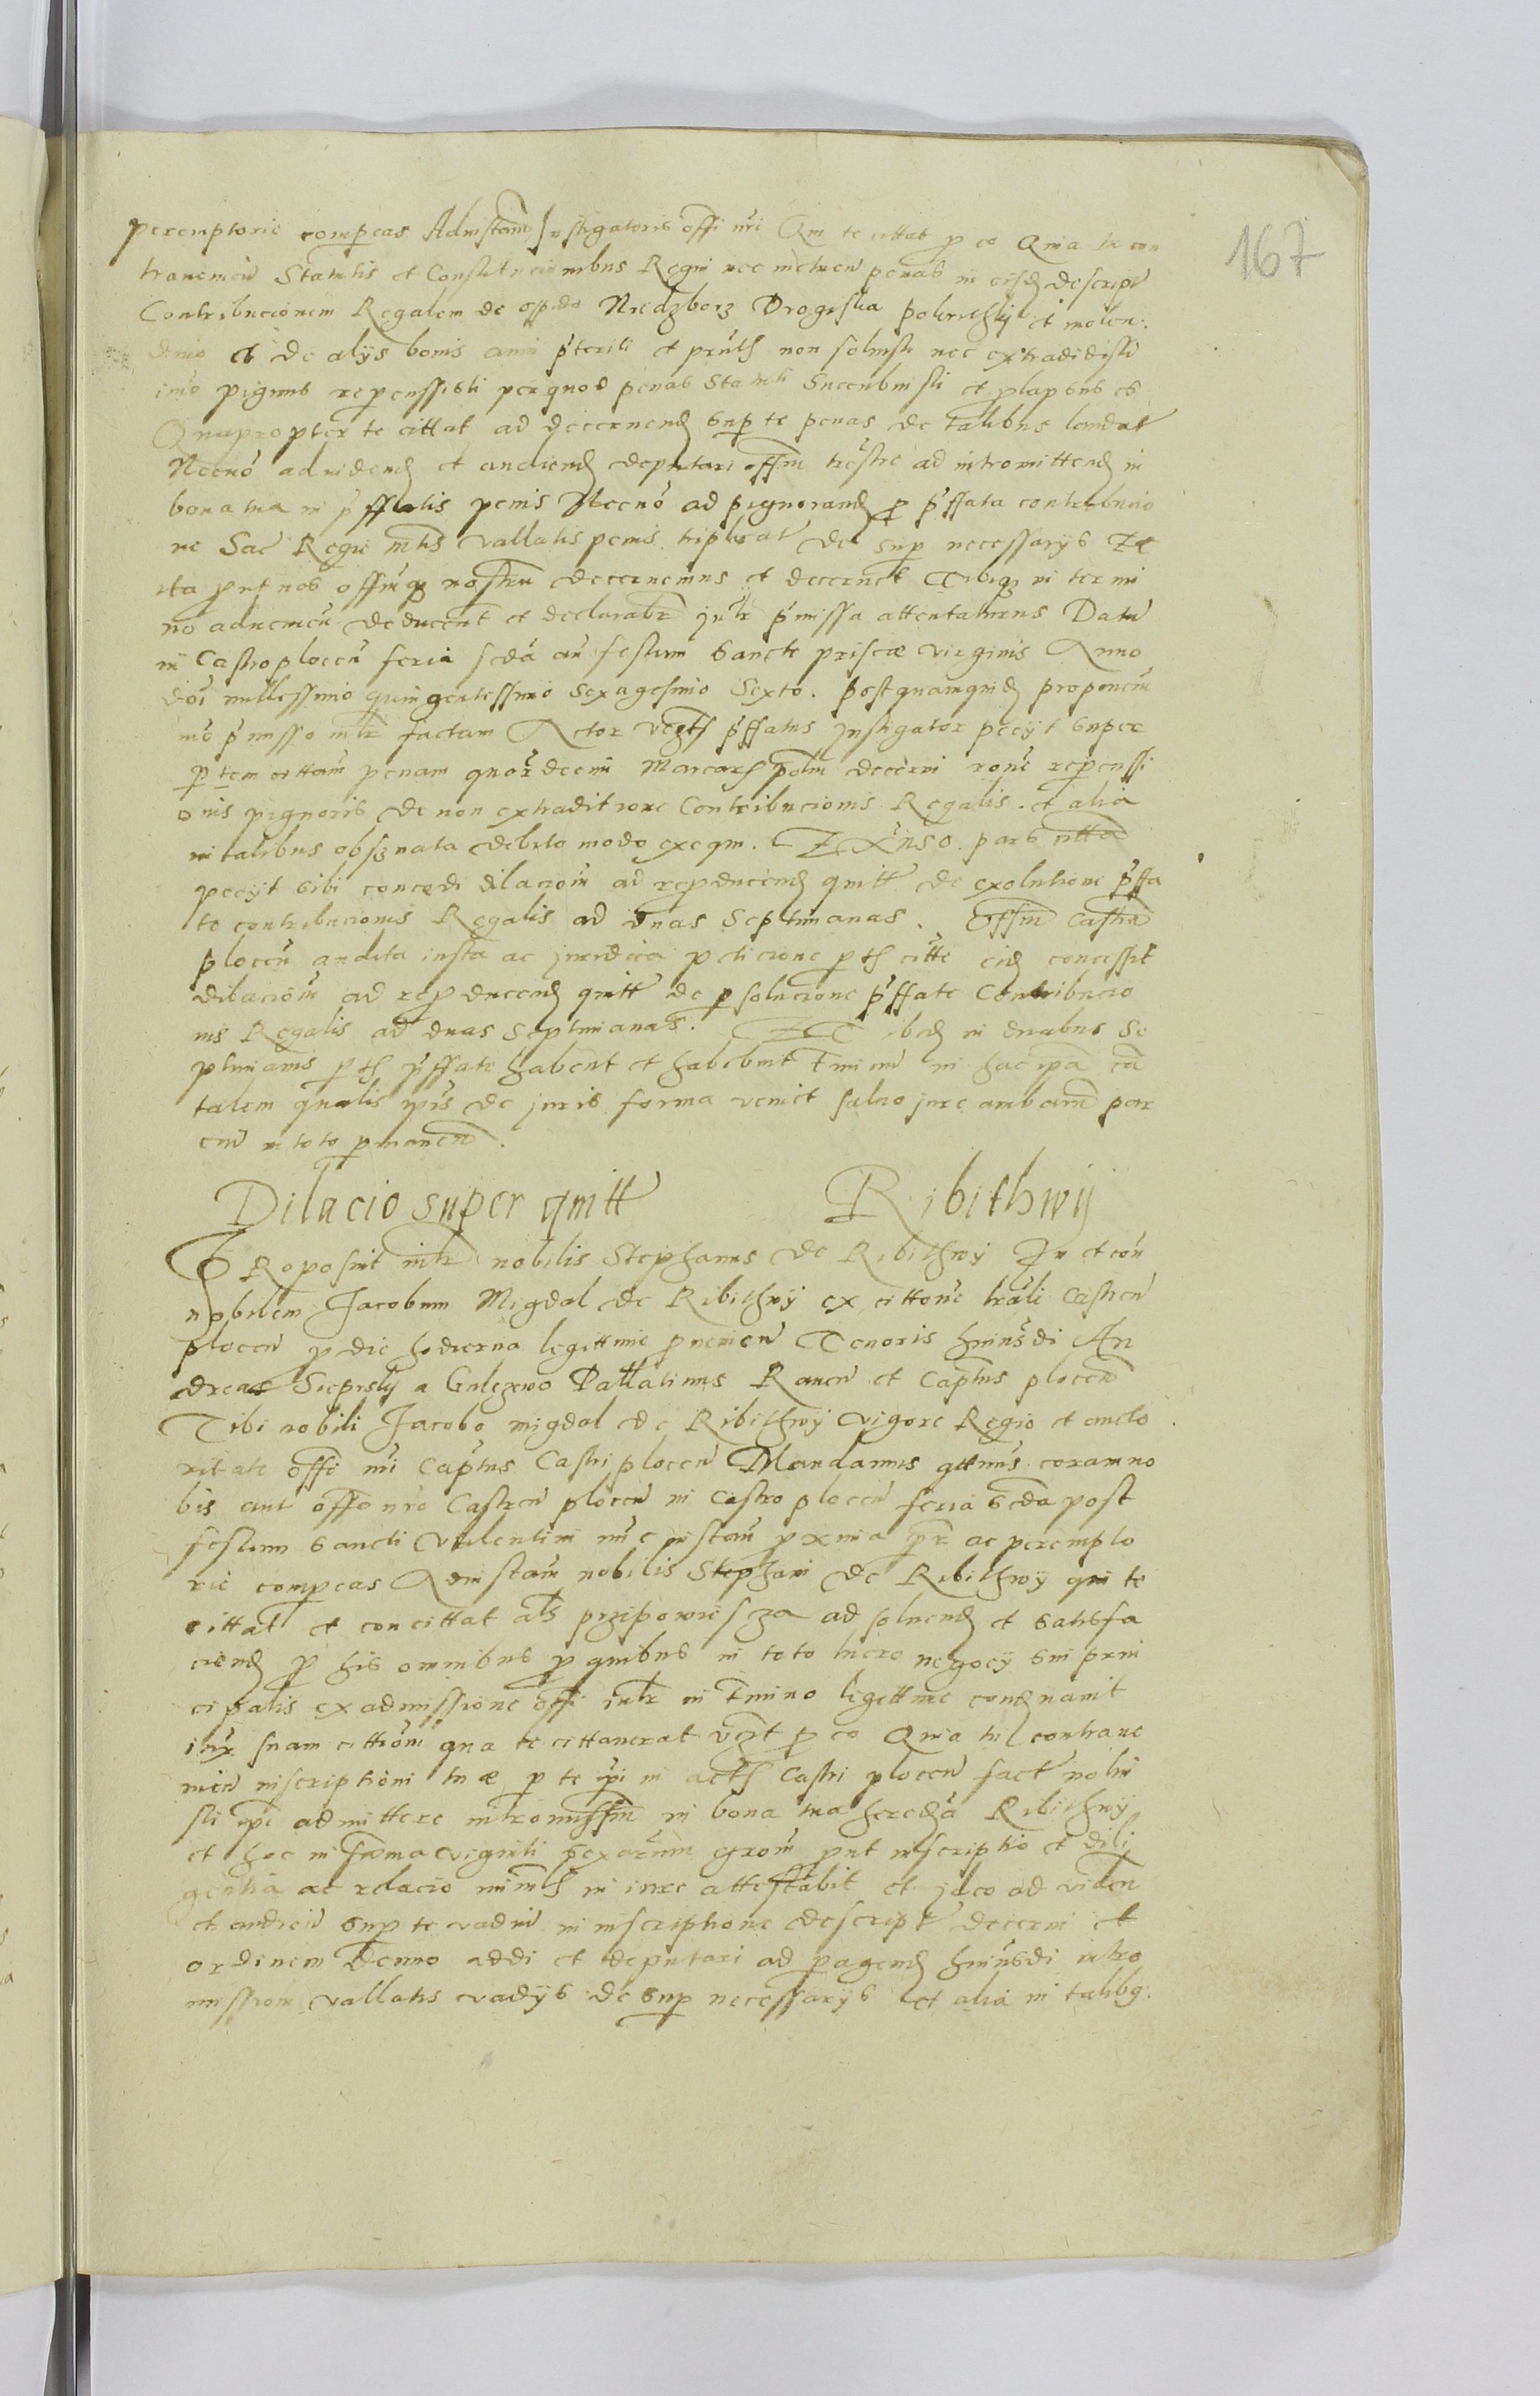 167
peremptorie compeas Adinstam Instigatoris offi nri Qui te cittat p eo Quia tu con
traveniens Statutis et Constitucionibus Regni nec metuen penas in eisd descript
Contribucionem Regalem de opido Niedzborz Drogiska et molen:
dino et de alijs bonis anni pteriti et pntis non solvisti nec extradidisti
imo pignus repercussisti per quod penas Statuti Succubuisti et plapsus es
Quapropter te cittat ad decernend sup te penas de talibus laudat
Necno ad vidend et audiend deputari offm trestre ad intromittend in
bona tua in pffatis penis Necno ad pignorand p pffata contribucio
ne Sac Regie mtis vallatis penis triplicat de sup necessarijs Et
ita put nos offmq nostru decernemus et decernet Tibiq in termi
no advenien deducent et declarabit Jntr pmissa attentaturus Datu
in Castro plocen feria scda an festum Sancte priscæ virginis Anno
doi millessimo quingentessimo Sexagesimo Sexto. postquamquid proponem
mo pmisso intr factam Actor vezts pffatus Jnstigator pecijt super
ptem cittam penam quordecim Marcar polm decerni rone repenssi
onis pignoris de non extraditione Contribucionis Regalis. et alia
in talibus obsznata debito modo exeqm. EXADVERSO. pars citta
pecijt sibi concedi dilacioni ad reproducend quitt de exolutione pffa
te contribucionis Regalis ad duas Septimanas. Offm Castre
plocen audita insta ac juridica peticione pts citte eid concessit
dilacioni ad reproducend quitt de psolucione pffate Contribucio
nis Regalis ad duas Septimanas. ET ibid in duabus Se
ptimanis pts pffate habent et habebunt Tminu in hac ipa ca
talem qualis ipis de juris forma venict salvo jure ambarum par
ciu in toto pmanen.
Dilacio super quitt Ribithwij
PRoposuit intr nobilis Stephanus de Ribithwij In et con
nobilem Jacobum Migdal de Ribithwij ex cittone trali Castren
plocen p die hodierna legittime pvenien Tenoris huiusdi An
dreas Sieprsky a Gulczewo Pallatinus Raven et Captus plocen
Tibi nobili Jacobo migdal de Ribithwij vigore Regio et aucto
ritate offi nri Captus Castri plocen Mandamus qttnus coram no
bis aut offo nro Castren plocen in Castro plocen feria scda post
festum Sancti Valentini nuc instan pxima pr ac perempto
rie compeas Adinstam nobilis Stephani de Ribithwij qui te
cittat et concittat als przipowiescza ad solvend et satisfa
ciend p his omnibus p quibus in toto lucro negocij sui prin
cipalis ex admissione offi intr in Tmino legittme condnavit
intr suam cittiom qua te cittaverat vezt p eo Quia tu contrave
nien inscriptioni tuæ p te ipi in actis Castri plocen fact nolui
sti ipi admittere intromissm in bona tua heredia Ribithwij
et hoc in summa viginti sexagenarum grom put inscriptio et dili
gentia ac relacio minist in jure attestabit et ideo ad viden
et audien sup te vadiu in inscriptione descript decerni et
ordinem denuo addi et deputari ad pagend huiusdi intro
missiom vallatis vadijs de sup necessarijs et alia in talibq: